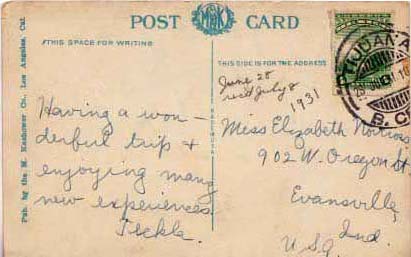 POST CARD
THIS SPACE FOR WRITING
THIS SIDE IS FOR THE ADDRESS
Pub. by the M. Kashower Co., Los Angeles, Cal.
TIJUANA
B. C
June 28
recd July 8
1931
Having a won-
derful trip &
enjoying many
new experiences.
Teckla.
Miss Elizabeth
902 W. Oregon St.
Evansville,
Ind.
U.S.A.